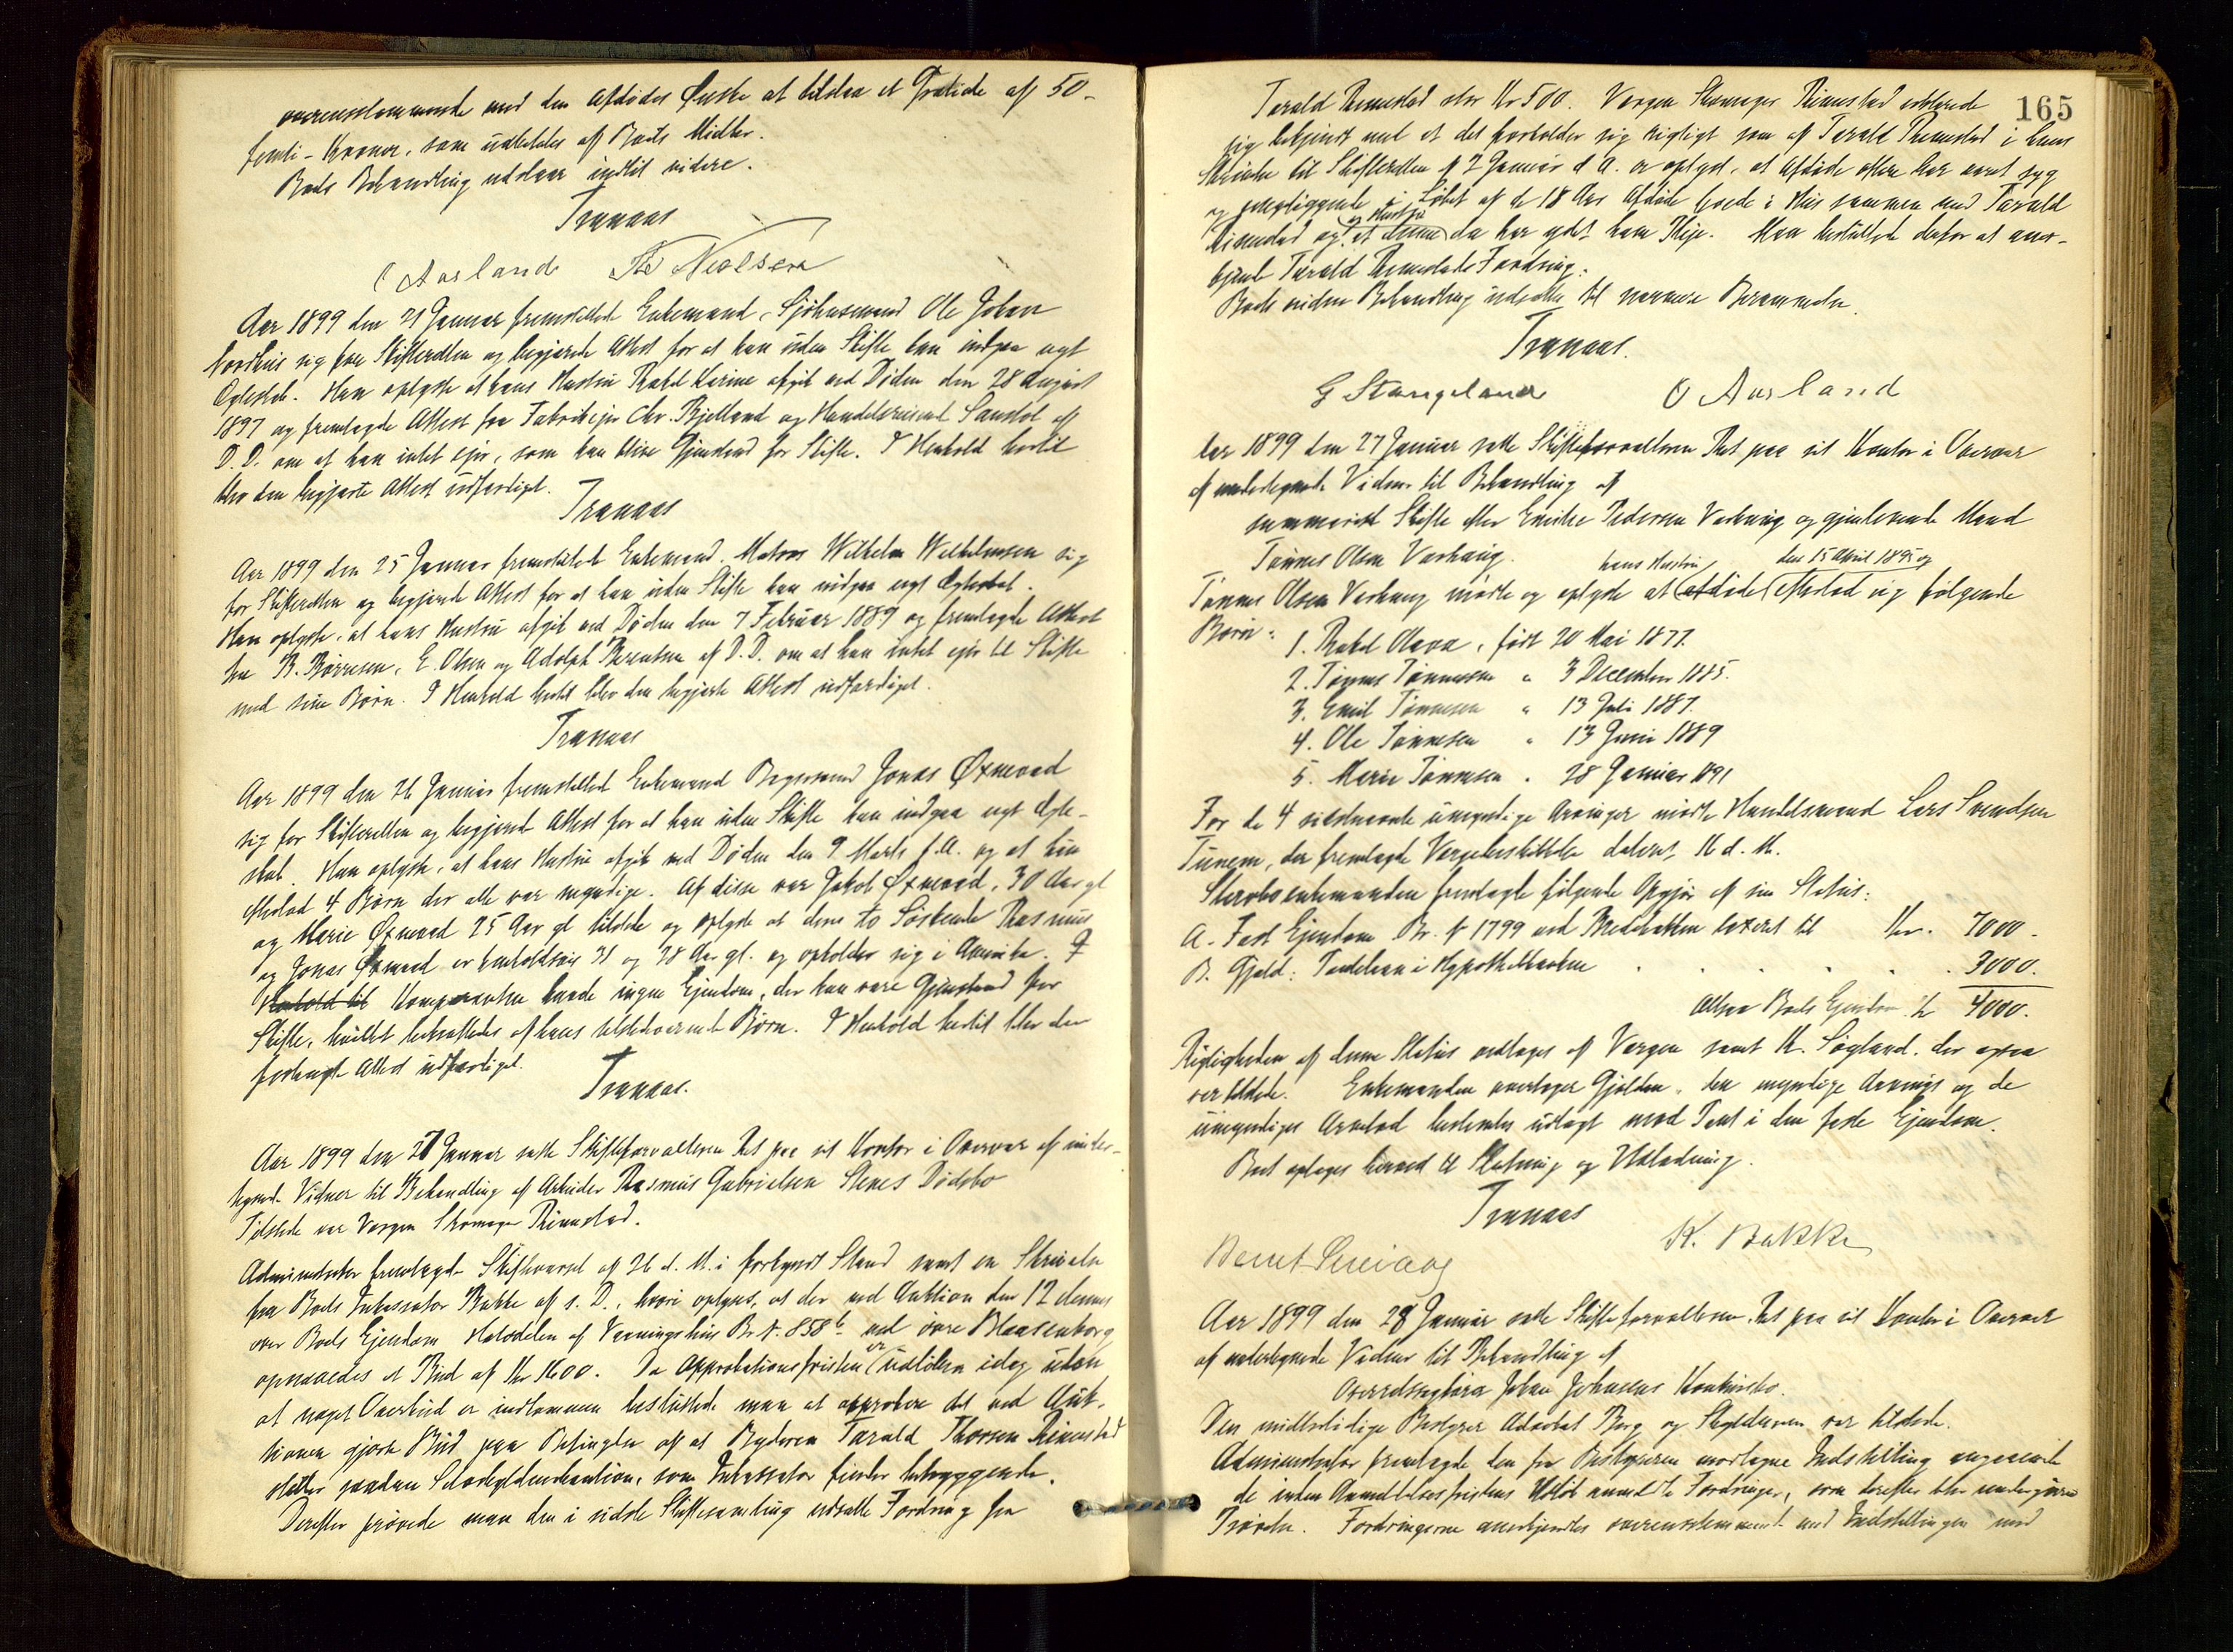 overensstemmende med den Afdødes Ønske at tilstaa et Gratiale af 50 -
femti - Kroner, som udbetales af Boets Midler.
Boets Behandling udstaar indtil videre.
Tranaas
O Aarland Th Nielsen
Aar 1899 den 21 Januar fremstillede Enkemand, Sjøhusmand Ole Johan
Nordhus sig for Skifteretten og begjærede Attest for at han uden Skifte kan indgaa nyt
Egteskab. Han oplyste at hans Hustru Rakel Karine afgik ved Døden den 28 August
1897 og fremlagde Attest fra Fabrikejer Chr. Bjelland og Handelsreisende af
D. D. om at han intet ejer, som kan blive Gjenstand for Skifte. I Henhold hertil
blev den begjærte Attest udfærdiget.
Tranaas
Aar 1899 den 25 Januar fremstillede Enkemand Matros Wilhelm Wilhelmsen sig
for Skifteretten og begjærede Attest for at han uden Skifte kan indgaa nyt Egteskab.
Han oplyste, at hans Hustru afgik ved Døden den 7 Februar 1889 og fremlagde Attest
fra B. Børresen, E. Olsen og Adolph Berentsen af D. D. om at han intet ejer til Skifte
med sine Børn. I Henhold hertil blev den begjærte Attest udfærdiget.
Tranaas
Aar 1899 den 26 Januar fremstillede Enkemand Bogermand Jonas Øxnevad
sig for Skifteretten og begjærede Attest for at han uden Skifte kan indgaa nyt Egte-
skab. Han oplyste, at hans Hustru afgik ved Døden den 9 Marts f.A. og at hun
efterlod 4 Børn der alle var myndige. Af disse var Jakob Øxnevad, 30 Aar gl
og Marie Øxnevad 25 Aar gl tilstede og oplyste at deres to Søskende Rasmus
og Jonas Øxnevad er henholdsvis 31 og 28 Aar gl. og opholder sig i Amerika. I
Henhold til Komparenten havde ingen Ejendom, der kan være Gjenstand for
Skifte, hvilket bekræftedes af hans tilstedeværende Børn. I Henhold hertil blev den
forlangte Attest udfærdiget.
Tranaas.
Aar 1899 den 27 Januar satte Skifteforvalteren Ret paa sit Kontor i Overvær af under-
tegnede Vidner til Behandling af Arbeider Rasmus Gabrielsen Stenes Dødsbo
Tilstede var Vergen Skomager Rimestad.
Administrator fremlagde Skiftevarsel af 26 d. M. i forkyndt Stand samt en Skrivelse
fra Boets Inkassator Bakke af s. D., hvori oplyses, at der ved Auktion den 12 dennes
over Boets Ejendom Halvdelen af Vaaningshus Br. N. 858b ved øvre Blaasenborg
opnaaedes et Bud af Kr 1600. Da Approbationsfristen er udløben idag uden
at noget Overbud er indkommen besluttede man at approbere det ved Auk-
tionen gjorte Bud paa Betingelse af at Byderen Tarald Thorsen Rimestad
stiller saadan Selvskyldnerkaution, som Inkassator finder betryggende.
Derefter prøvede man den i sidste Skiftesamling udsatte Fordring fra
165
Tarald Rimestad stor Kr 500. Vergen Skomager Rimestad erklærede
sig bekjendt med at det forholder sig rigtigt som af Tarald Rimestad i hans
Skrivelse til Skifteretten af 2 Januar d A. er oplyst, at Afdøde oftere har været syg
og sengeliggende i Løbet af de 18 Aar Afdøde boede i Hus sammen med Tarald
Rimestad og Hustru og at denne da har ydet ham Pleje. Man besluttede derfor at aner-
kjende Tarald Rimestads Fordring.
Boets videre Behandling udsattes til nærmere Berammelse.
Tranaas.
G Stangeland O Aarland
Aar 1899 den 27 Januar satte Skifteforvalteren Ret paa sit Kontor i Overvær
af undertegnede Vidner til Behandling af
summarisk Skifte efter Emilie Pedersen Varhaug og gjenlevende Mand
Tønnes Olsen Varhaug.
Tønnes Olsen Varhaug mødte og oplyste at hans Hustru afdøde den 15 April 1895 og efterlod sig følgende
Børn:
1. Rakel Olava, født 20 Mai 1877.
2. Tønnes Tønnesen " 3 December 1885.
3. Emil Tønnesen " 13 Juli 1887.
4. Ole Tønnesen " 13 Juni 1889
5. Marie Tønnesen " 28 Januar 1891
For de 4 sidstnævnte umyndige Arvinger mødte Handelsmand Lars Svendsen
Tunem, der fremlagde Vergebeskikkelse dateret 16 d. M.
Sterboenkemanden fremlagde følgende Opgjør af sin Status:
A. Fast Ejendom Br. N 1799 ved Bredebakken taxeret til Kr. 7000.
B. Gjæld: Pantelaan i Hypothekbanken . . . . 3000.
Altsaa Boets Ejendom Kr 4000.
Rigtigheden af denne Status vedtages af Vergen samt K. Søyland, der ogsaa
var tilstede. Enkemanden overtager Gjælden, den myndige Arvings og de
umyndiges Arvelod bestemtes udlagt mod Pant i den faste Ejendom.
Boet optages hermed til Slutning og Udlodning.
Tranaas
Berent K. Bakke
Aar 1899 den 28 Januar satte Skifteforvalteren Ret paa sit Kontor i Overvær
af undertegnede Vidner til Behandling af
Overretssagfører Johan Johnssens Konkursbo.
Den midlertidige Bestyrer Advokat Berg og Skyldneren var tilstede.
Administrator fremlagde den fra Bestyreren modtagne Indstilling angaaende
de inden Anmeldelsesfristens Udløb anmeldte Fordringer, som derefter blev undergiven
Prøvelse. Fordringerne anerkjendtes overensstemmende med Indstillingen med